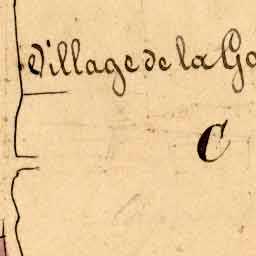 Village de la Go
C